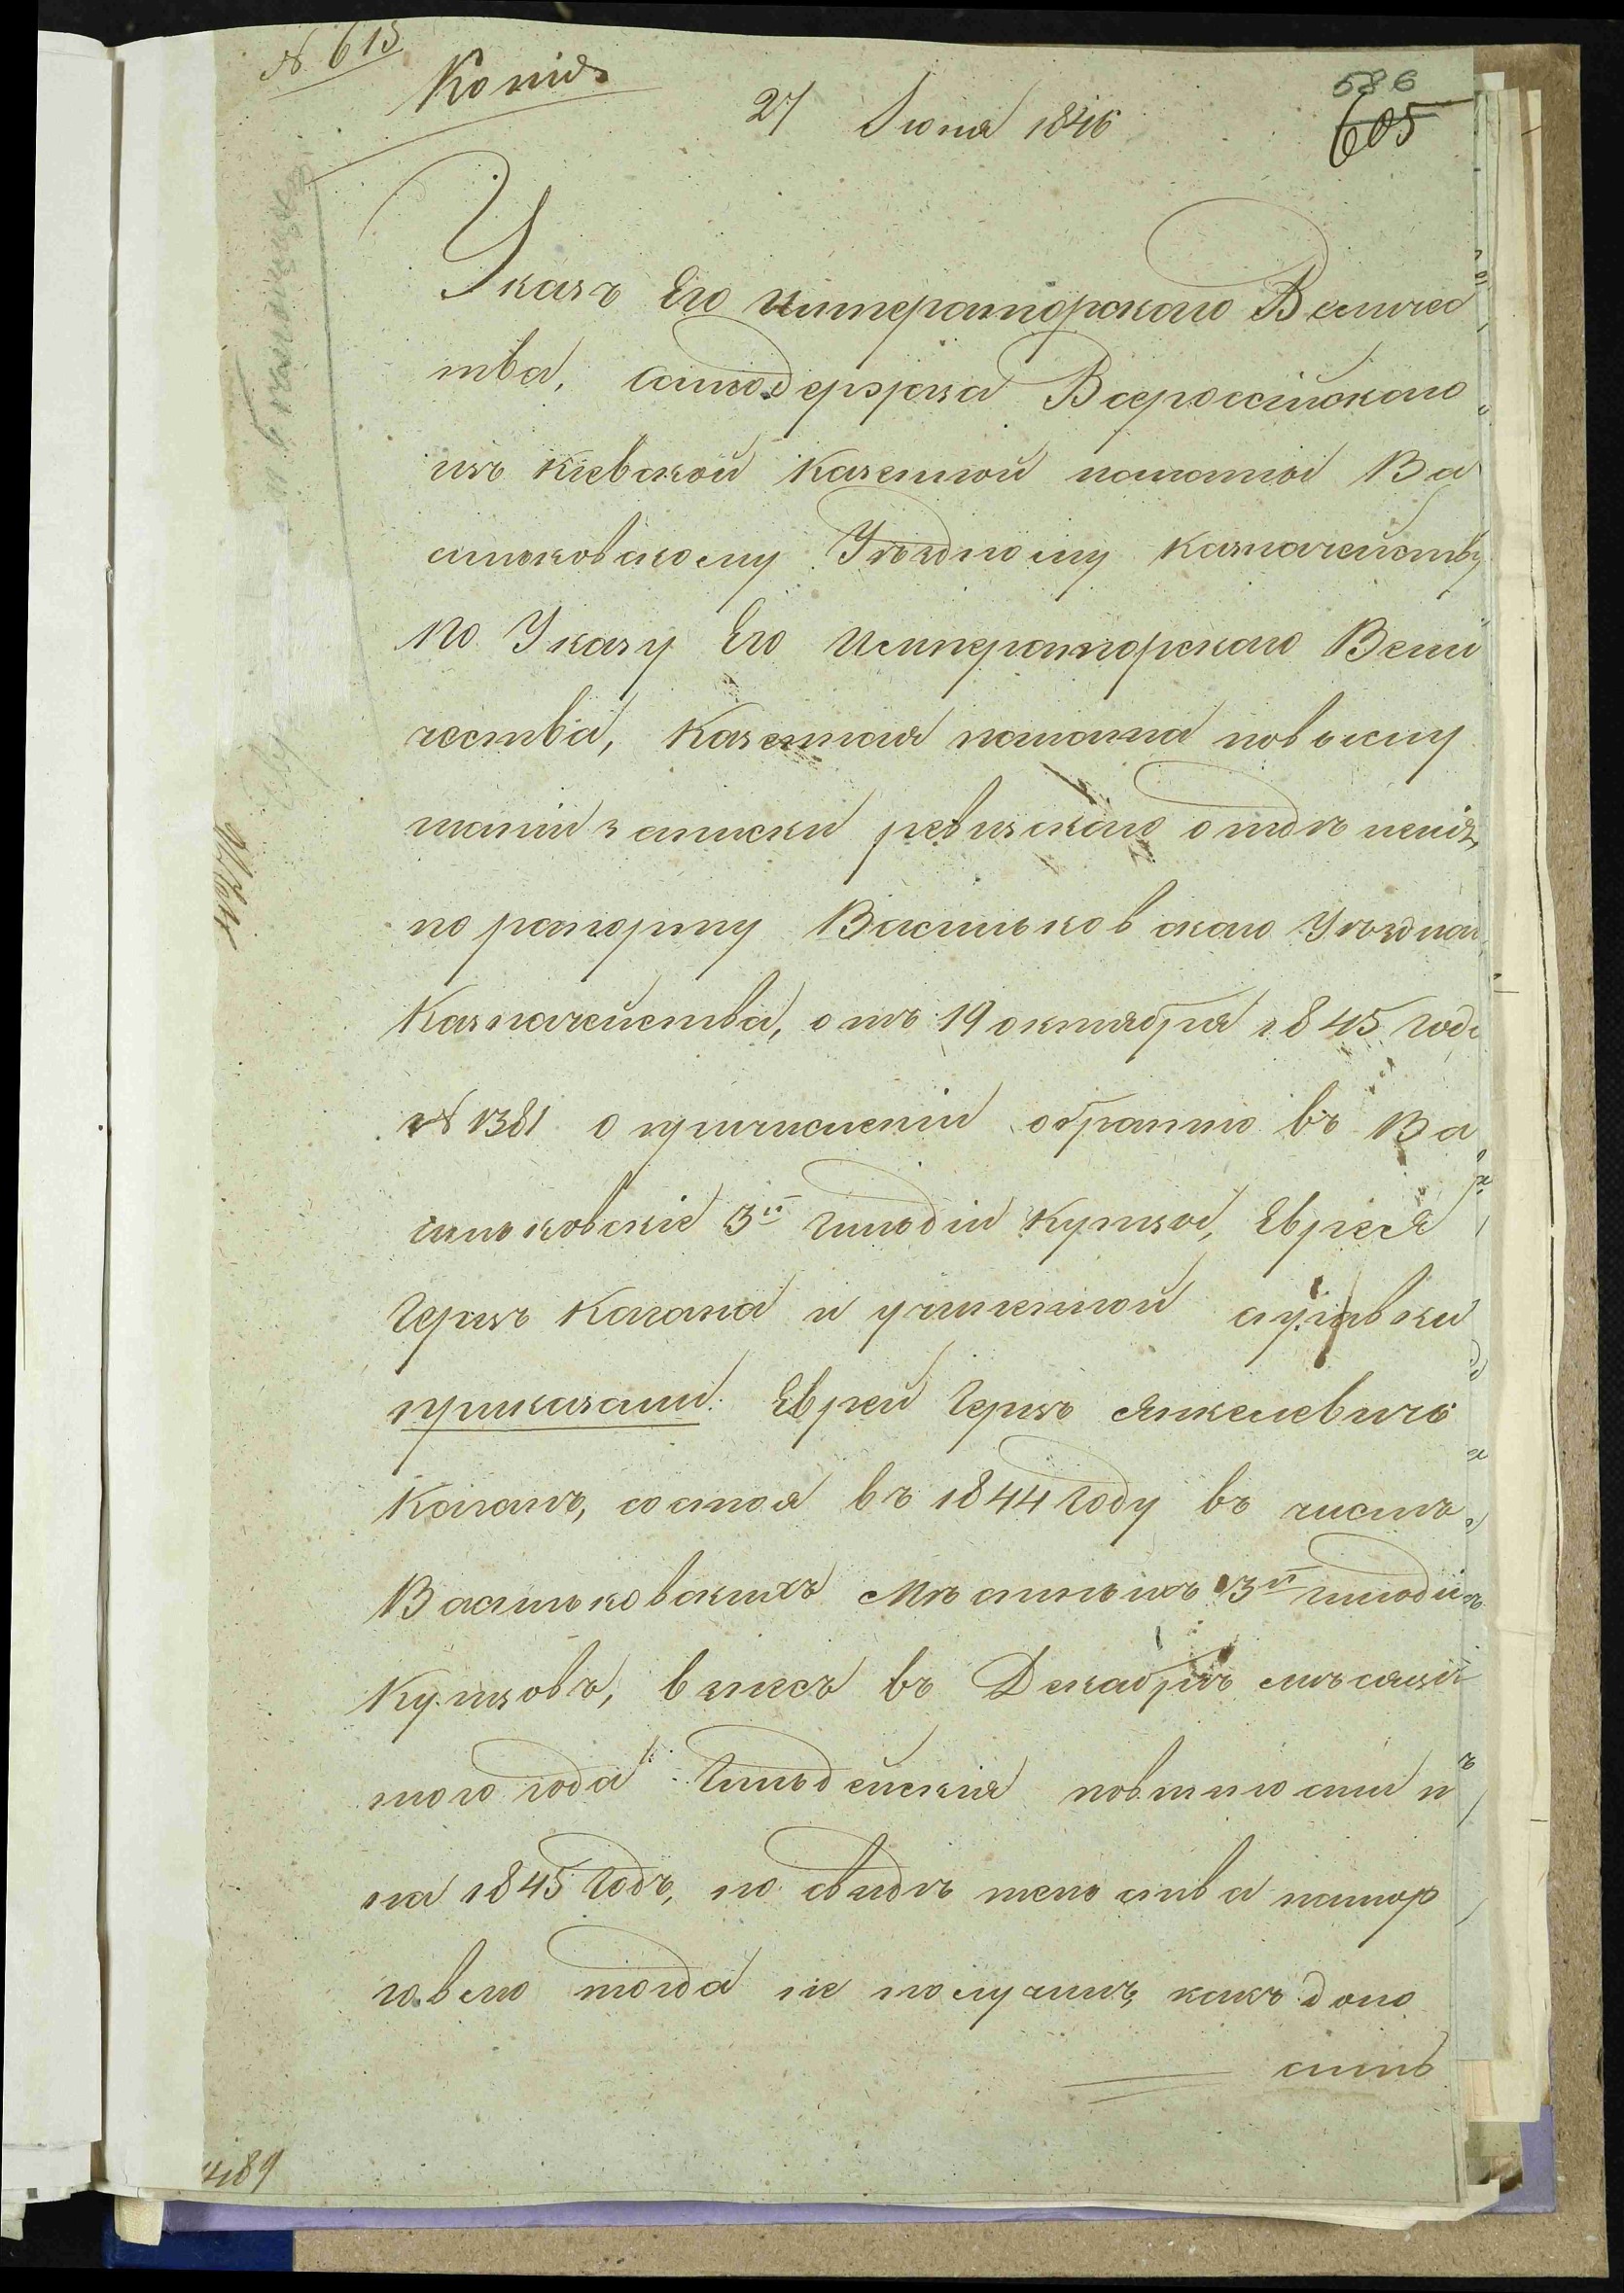 № 615
Копия
27 Июня 1846
586
605
Указъ Его Императорскаго Величес
тва, Самодержца Всероссійскаго
изъ Кіевской Казенной палаты Ва
сильковскому Уѣздному Казначейству
По Указу Его Императорскаго Вели
чества, Казенная палата по выслу
шаніи записки ревизскаго отдѣленія,
по рапорту Васильковскаго Уѣзднаго
Казначейства, отъ 19 октября 1845 года
№ 1381 о причисленіи обратно въ Ва
сильковскіе 3й гильдіи купцы, Еврея
Герцъ Кагана и учиненной справки
приказали: Еврей Герцъ Янкелевичъ
Каганъ, состоя въ 1844 году въ числѣ
Васильковскихъ Мѣстныхъ 3й гильдіи
Купцовъ, внесъ въ Декабрѣ мѣсяцѣ
того года Гильдейскія повинности и
на 1845 годъ, но свидѣтельства на тор
говлю тогда не получилъ, какъ доно
ситъ
4189